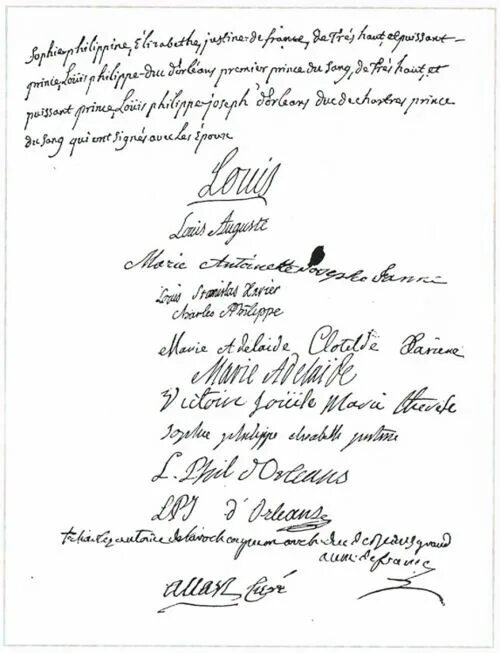 Sophie philippine, Elizabethe, justine de france, de Trés haut et puissant
prince, Loüis philippe duc d'orléans premier prince du Sang, de Trés haut, et
puissant prince, Loüis philippe joseph d'orleans duc de chartres prince
du Sang qui ont signés avec les Époux
Louis
Louis Auguste
Marie Antoinette Josepha Janne
Louis Stanislas Xavier
Charles Philippe
Marie Adelaide Clotilde Xaviere
Marie Adelaïde
Victoire Loüise Marie Therese
Sophie philippe elisabeth justine
L. Phil d'Orleans
LPJ d'Orleans
archeveque duc de Reims grand
aum. de france
allart Curé